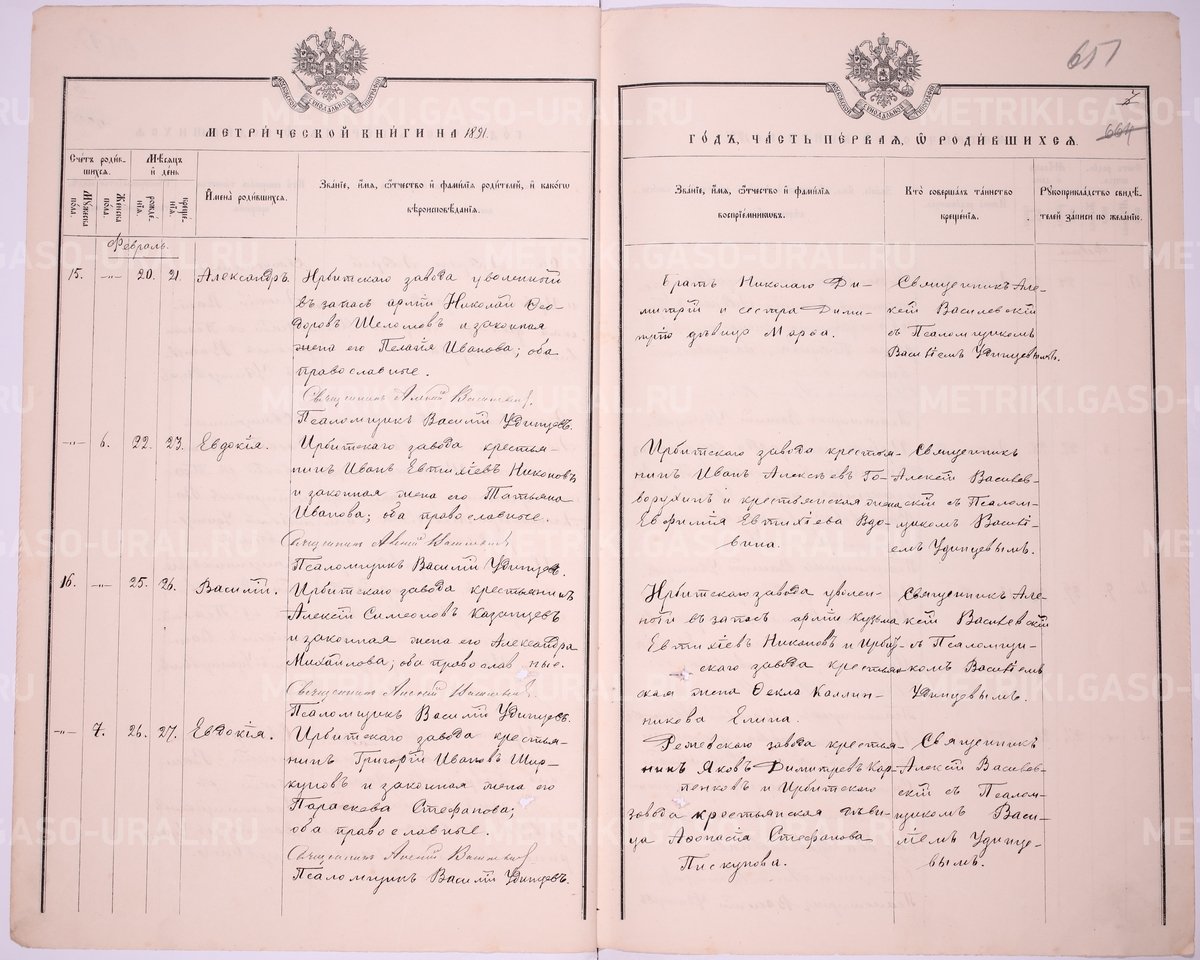 657
2
664
МЕТРИ́ЧЕСКОЙ КНИ́ГИ НА 1891.
ГО́ДЪ, ЧА́СТЬ ПЕ́РВАЯ, Ѿ РОДИ́ВШИХСЯ.
Сче́тъ роди́в-
шихся.
Му́жеска по́ла.
Же́нска по́ла.
Мѣ́сяцъ и҆ де́нь
рожде́-
нїѧ.
креще́-
нїѧ.
И҆мена̀ роди́вшихся.
Зва́нїе, и҆́мя, ѻ҆́тчество и҆ фами́лїя роди́телей, и҆ како́гѡ
вѣроисповѣ́данїя.
Зва́нїе, и҆́мя, ѻ҆́тчество и҆ фами́лїя
воспрїе́мниковъ.
Кто̀ соверша́лъ та́инство
креще́нїя.
Рꙋкоприкла́дство свидѣ́-
телей за́писи по жела́нїю.
Февраль.
15. -„- 20. 21. Александръ.
Ирбитскаго завода уволенный
въ запасъ арміи Николай Ѳео-
доровъ Шеломовъ и законная
жена его Пелагія Иванова; оба
православные.
Священникъ Алексій Васильевскій
Псаломщикъ Василій Удинцевъ.
Братъ Николаю Ди-
митрій и сестра Дими-
трію дѣвица Марѳа.
Священникъ Але-
ксій Василевскій
съ Псаломщикомъ
Василіемъ Удинцевымъ.
-„- 6. 22. 23. Евдокія.
Ирбитскаго завода крестья-
нинъ Иванъ Евтихіевъ Никоновъ
и законная жена его Татьяна
Иванова; оба православные.
Священникъ Алексій Васильевскій
Псаломщикъ Василій Удинцев.
Ирбитскаго завода крестья-
нинъ Иванъ Алексѣевъ Го-
ворухинъ и крестьянская жена
Евфимія Евтихіева Вдо-
вина.
Священникъ
Алексій Василев-
скій съ Псалом-
щикомъ Василі-
емъ Удинцевымъ.
16. -„- 25. 26. Василій.
Ирбитскаго завода крестьянинъ
Алексій Симеоновъ Казанцевъ
и законная жена его Александра
Михайлова; оба православные.
Священникъ Алексій Васильевскій
Псаломщикъ Василій Удинцевъ.
Ирбитскаго завода уволен-
ной въ запасъ арміи Кузьма
Евтихіевъ Никоновъ и Ирбит-
скаго завода крестьян-
ская жена Ѳекла Каллин-
никова Елина.
Священникъ Але-
ксій Васильевскій
съ Псаломщи-
комъ Василіемъ
Удинцевымъ.
-„- 7. 26. 27. Евдокія.
Ирбитскаго завода крестья-
нинъ Григорій Ивановъ Шир-
куновъ и законная жена его
Параскева Стефанова;
оба православные.
Священникъ Алексій Васильевскій
Псаломщикъ Василій Удинцевъ.
Режевскаго завода крестья-
нинъ Яковъ Димитріевъ Кар-
пенковъ и Ирбитскаго
завода крестьянская дѣви-
ца Аѳонасія Стефанова
Пискунова.
Священникъ
Алексій Василев-
скій съ Псалом-
щикомъ Васи-
ліемъ Удинце-
вымъ.
METRIKI.GASO-URAL.RU